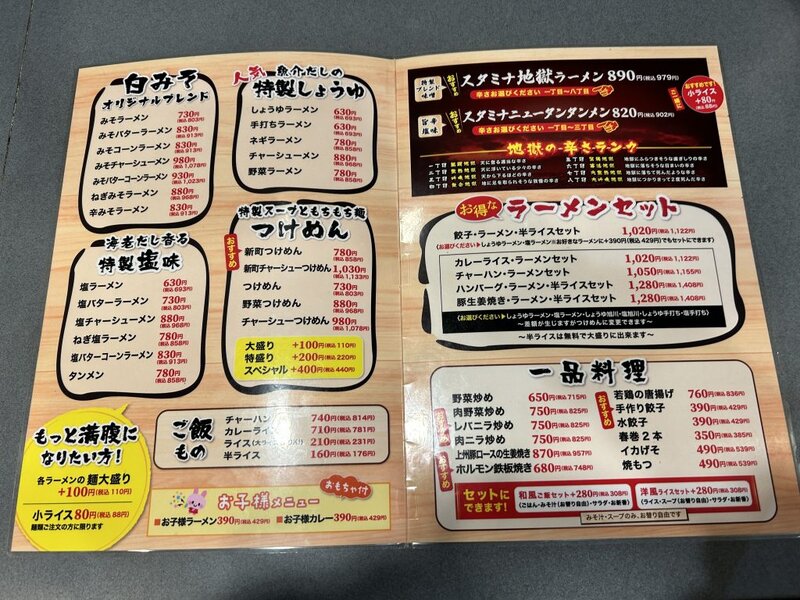 白みそ
オリジナルブレンド
みそラーメン 730円(税込803円)
みそバターラーメン 830円(税込913円)
みそコーンラーメン 830円(税込913円)
みそチャーシューメン 980円(税込1,078円)
みそバターコーンラーメン 930円(税込1,023円)
ねぎみそラーメン 880円(税込968円)
辛みそラーメン 830円(税込913円)
海老だし香る
特製塩味
塩ラーメン 630円(税込693円)
塩バターラーメン 730円(税込803円)
塩チャーシューメン 880円(税込968円)
ねぎ塩ラーメン 780円(税込858円)
塩バターコーンラーメン 830円(税込913円)
タンメン 780円(税込858円)
もっと満腹に
なりたい方!
各ラーメンの麺大盛り
+100円(税込110円)
小ライス80円(税込88円)
麺類ご注文の方に限ります
人気 魚介だしの
特製しょうゆ
しょうゆラーメン 630円(税込693円)
手打ちラーメン 630円(税込693円)
ネギラーメン 780円(税込858円)
チャーシューメン 880円(税込968円)
野菜ラーメン 780円(税込858円)
特製スープともちもち麺
つけめん
おすすめ
新町つけめん 780円(税込858円)
新町チャーシューつけめん 1,030円(税込1,133円)
つけめん 730円(税込803円)
野菜つけめん 880円(税込968円)
チャーシューつけめん 980円(税込1,078円)
大盛り +100円(税込110円)
特盛り +200円(税込220円)
スペシャル +400円(税込440円)
ご飯もの
チャーハン 740円(税込814円)
カレーライス 710円(税込781円)
ライス 210円(税込231円)
半ライス 160円(税込176円)
お子様メニュー おもちゃ付
■お子様ラーメン390円(税込429円) ■お子様カレー390円(税込429円)
特製ブレンド味噌 おすすめ スタミナ地獄ラーメン 890円(税込979円)
辛さお選びください 一丁目〜八丁目
旨辛塩味 おすすめ スタミナニュータンタンメン 820円(税込902円)
辛さお選びください 一丁目〜三丁目
おすすめです!
ご一緒に
小ライス
+80円
(税込88円)
地獄の辛さランク
お得な ラーメンセット
餃子・ラーメン・半ライスセット 1,020円(税込1,122円)
(お選びください▶しょうゆラーメン・塩ラーメン※お好きなラーメンに+390円(税込429円)でもセットにできます)
カレーライス・ラーメンセット 1,020円(税込1,122円)
チャーハン・ラーメンセット 1,050円(税込1,155円)
ハンバーグ・ラーメン・半ライスセット 1,280円(税込1,408円)
豚生姜焼き・ラーメン・半ライスセット 1,280円(税込1,408円)
(お選びください▶しょうゆラーメン・塩ラーメン・しょうゆ旭川・塩旭川・しょうゆ手打ち・塩手打ち)
〜差額が生じますがつけめんに変更できます〜
〜半ライスは無料で大盛りに出来ます〜
一品料理
野菜炒め 650円(税込715円)
肉野菜炒め 750円(税込825円)
おすすめ レバニラ炒め 750円(税込825円)
肉ニラ炒め 750円(税込825円)
おすすめ 上州豚ロースの生姜焼き 870円(税込957円)
ホルモン鉄板焼き 680円(税込748円)
若鶏の唐揚げ 760円(税込836円)
おすすめ 手作り餃子 390円(税込429円)
水餃子 390円(税込429円)
春巻2本 350円(税込385円)
イカげそ 490円(税込539円)
焼もつ 490円(税込539円)
セットにできます!
和風ご飯セット+280円(税込308円)
(ごはん・みそ汁(お替り自由)・サラダ・お新香)
洋風ライスセット+280円(税込308円)
(ライス・スープ(お替り自由)・サラダ・お新香)
みそ汁・スープのみ、お替り自由です